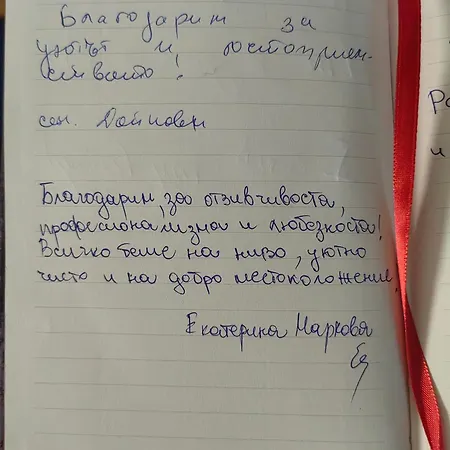 Благодарим за
уютът и гостоприем-
ството!
сем. Дойнови
Благодарим, за отзивчивоста,
професионализма и любезността!
Всичко беше на ниво, уютно
чисто и на добро местоположение.
Екатерина Маркова
и